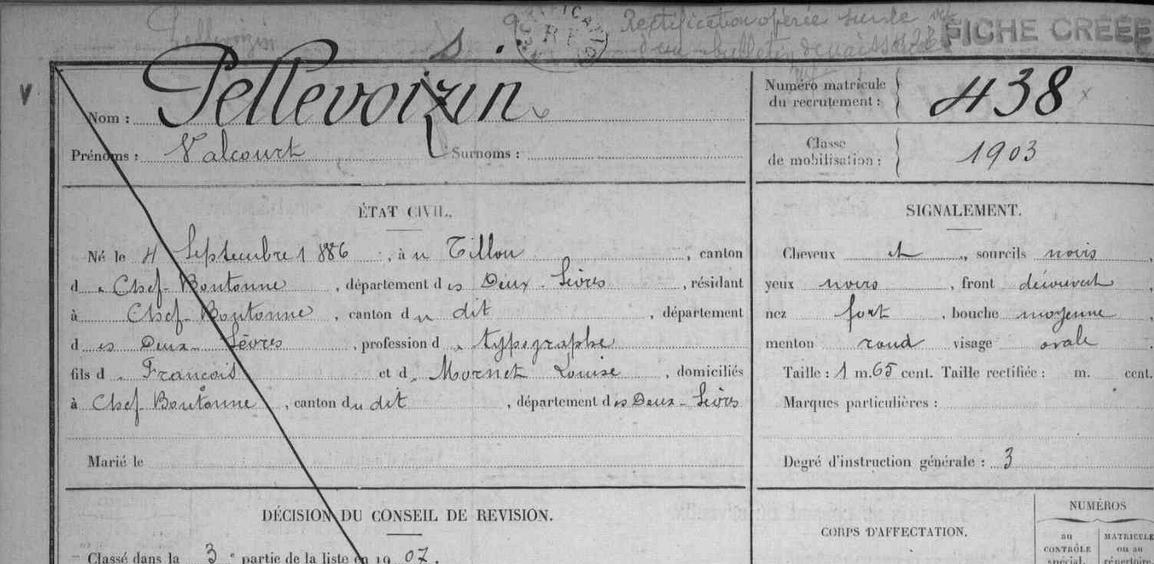 Pellevoizin s. Rectification opérée sur le vu
d'un bulletin de naissance FICHE CRÉÉE
Nom : Pellevoizin
Numéro matricule du recrutement : 438
Prénoms : Valcourt Surnoms :
Classe de mobilisation : 1903
ÉTAT CIVIL.
SIGNALEMENT.
Né le 4 Septembre 1886, à Tillou, canton
Cheveux et, sourcils noirs,
d Chef-Boutonne, département des Deux-Sèvres, résidant
yeux noirs, front découvert,
à Chef-Boutonne, canton du dit, département
nez fort, bouche moyenne,
des Deux-Sèvres, profession d typographe
menton rond visage ovale.
fils d François et d Mornet Louise, domiciliés
Taille : 1 m. 65 cent. Taille rectifiée : m. cent.
à Chef Boutonne, canton du dit, département des Deux-Sèvres
Marques particulières :
Marié le
Degré d'instruction générale : 3
DÉCISION DU CONSEIL DE REVISION.
CORPS D'AFFECTATION.
NUMÉROS
au CONTRÔLE spécial.
MATRICULE ou au répertoire
Classé dans la 3e partie de la liste en 1907.